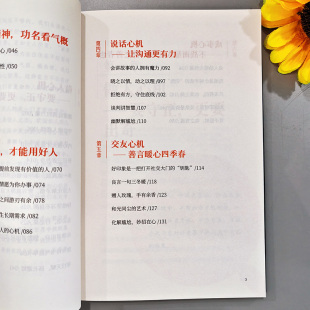 神，功名看气概
心 /046
性 /050
，才能用好人
现有价值的人 /070
愿为你办事 /074
之间游行有余 /078
生长期需求 /082
人的心机 /086
第四章
说话心机
——让沟通更有力
会讲故事的人拥有魔力 /092
晓之以情，动之以理 /103
拒绝有方，守住底线 /102
谈判讲智慧 /107
幽默解尴尬 /110
第五章
交友心机
——善言暖心四季春
好印象是一把打开社交大门的“钥匙” /114
良言一句三冬暖 /118
赠人玫瑰，手有余香 /123
和光同尘的艺术 /127
化解尴尬，妙招在心 /131
3